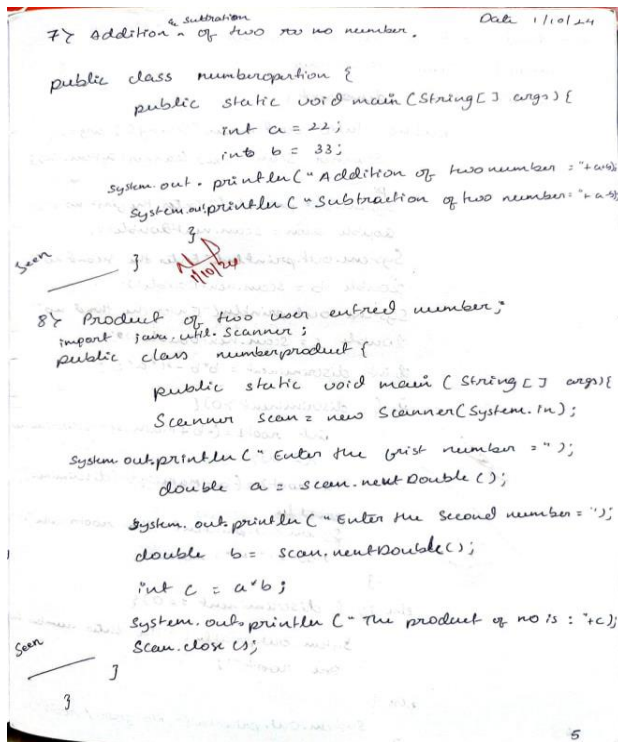 & Subtration Date 1/10/24
7} Addition ^ of two no number.
public class numberopartion {
public static void main (String[] args) {
int a = 22;
int b = 33;
System.out.println("Addition of two number : "+a+b);
System.out.println("Subtraction of two number: "+a-b);
}
Seen
}
1/10/24
8} Product of two user entred number;
import java.util.Scanner;
public class numberproduct {
public static void main (String[] args){
Scanner scan = new Scanner(System.in);
System.out.println("Enter the frist number = ");
double a = scan.nextDouble();
System.out.println("Enter the Second number = ");
double b = scan.nextDouble();
int c = a*b;
System.out.println("The product of no is : "+c);
Scan.close();
Seen
}
}
5